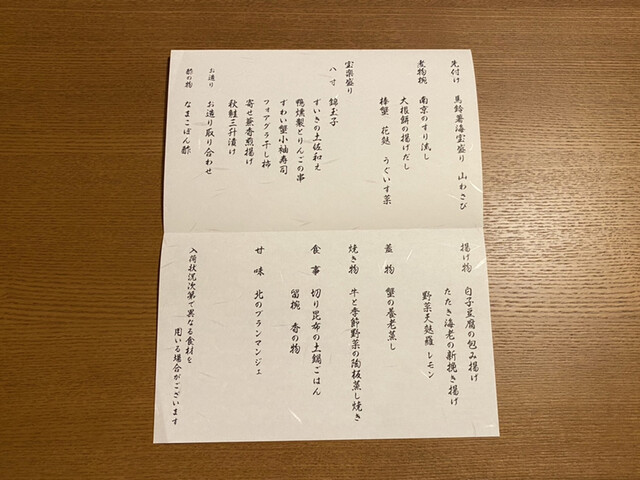 先付け 馬鈴薯海宝盛り 山わさび
煮物椀 南京のすり流し
大根餅の揚げだし
棒蟹 花麩 うぐいす菜
宝楽盛り
八寸 錦玉子
ずいきの土佐和え
鴨燻製とりんごの串
ずわい蟹小袖寿司
フォアグラ干し柿
寄せ銀杏煎揚げ
秋鮭三升漬け
お造り お造り取り合わせ
酢の物 なまこぽん酢
揚げ物 白子豆腐の包み揚げ
たたき海老の新挽き揚げ
野菜天麩羅 レモン
蓋物 蟹の養老蒸し
焼き物 牛と季節野菜の陶板蒸し焼き
食事 切り昆布の土鍋ごはん
留椀 香の物
甘味 北のブランマンジェ
入荷状況次第で異なる食材を
用いる場合がございます